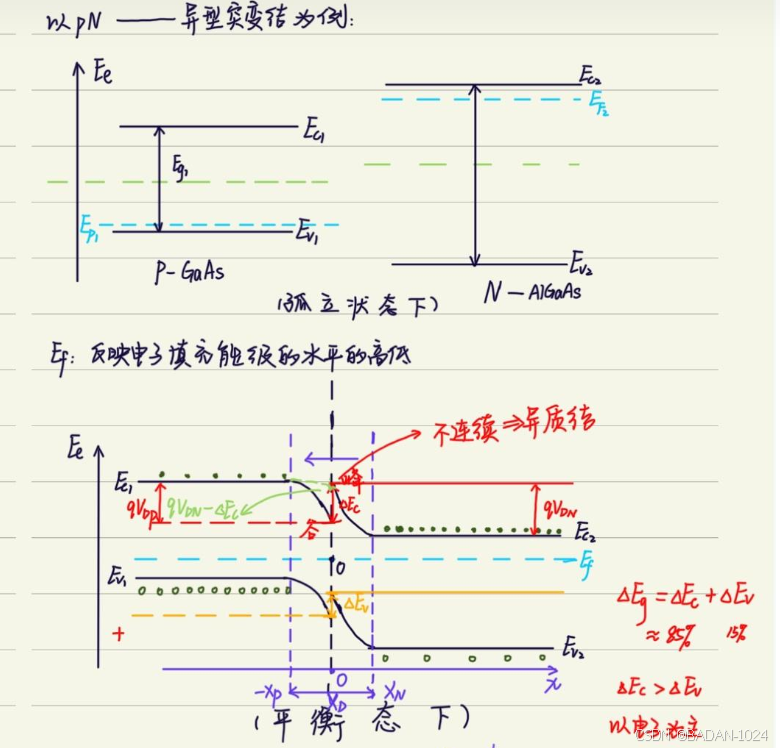 以pN——异型突变结为例:
Ee
Ec₁
Eg₁
EF₁
Ev₁
P-GaAs
Ec₂
EF₂
Ev₂
N-AlGaAs
(孤立状态下)
Ef: 反映电子填充能级的水平的高低
不连续⇒异质结
Ee
Ec₁
qVDp
qVDN-ΔEc
峰
ΔEc
谷
qVDN
Ec₂
Ef
0
Ev₁
ΔEv
+
Ev₂
ΔEg=ΔEc+ΔEv
≈85% 15%
-xp
0
xD
xN
x
ΔEc>ΔEv
以电子为主
(平衡态下)
CSDN @BADAN-1024